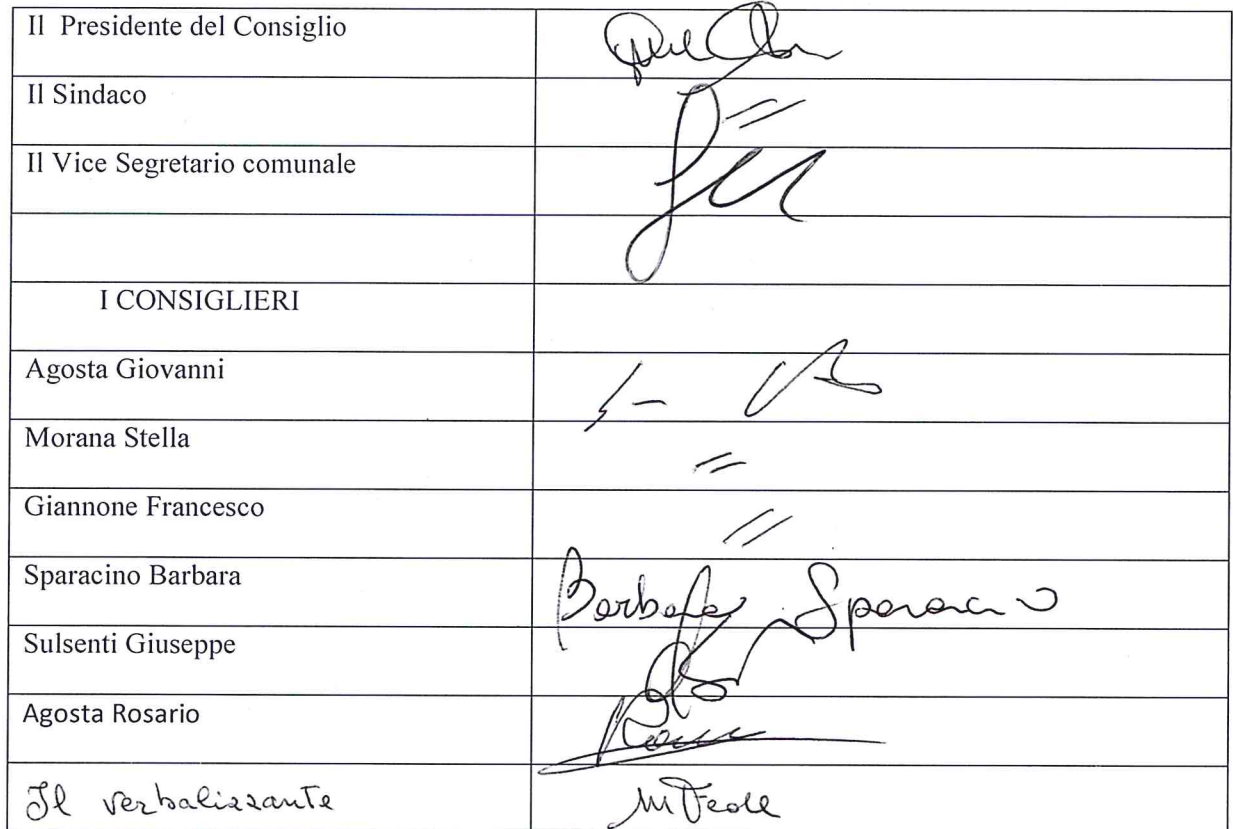 Il Presidente del Consiglio
Il Sindaco =
Il Vice Segretario comunale
I CONSIGLIERI
Agosta Giovanni
Morana Stella =
Giannone Francesco =
Sparacino Barbara Barbara Sparacino
Sulsenti Giuseppe
Agosta Rosario
Il verbalizzante